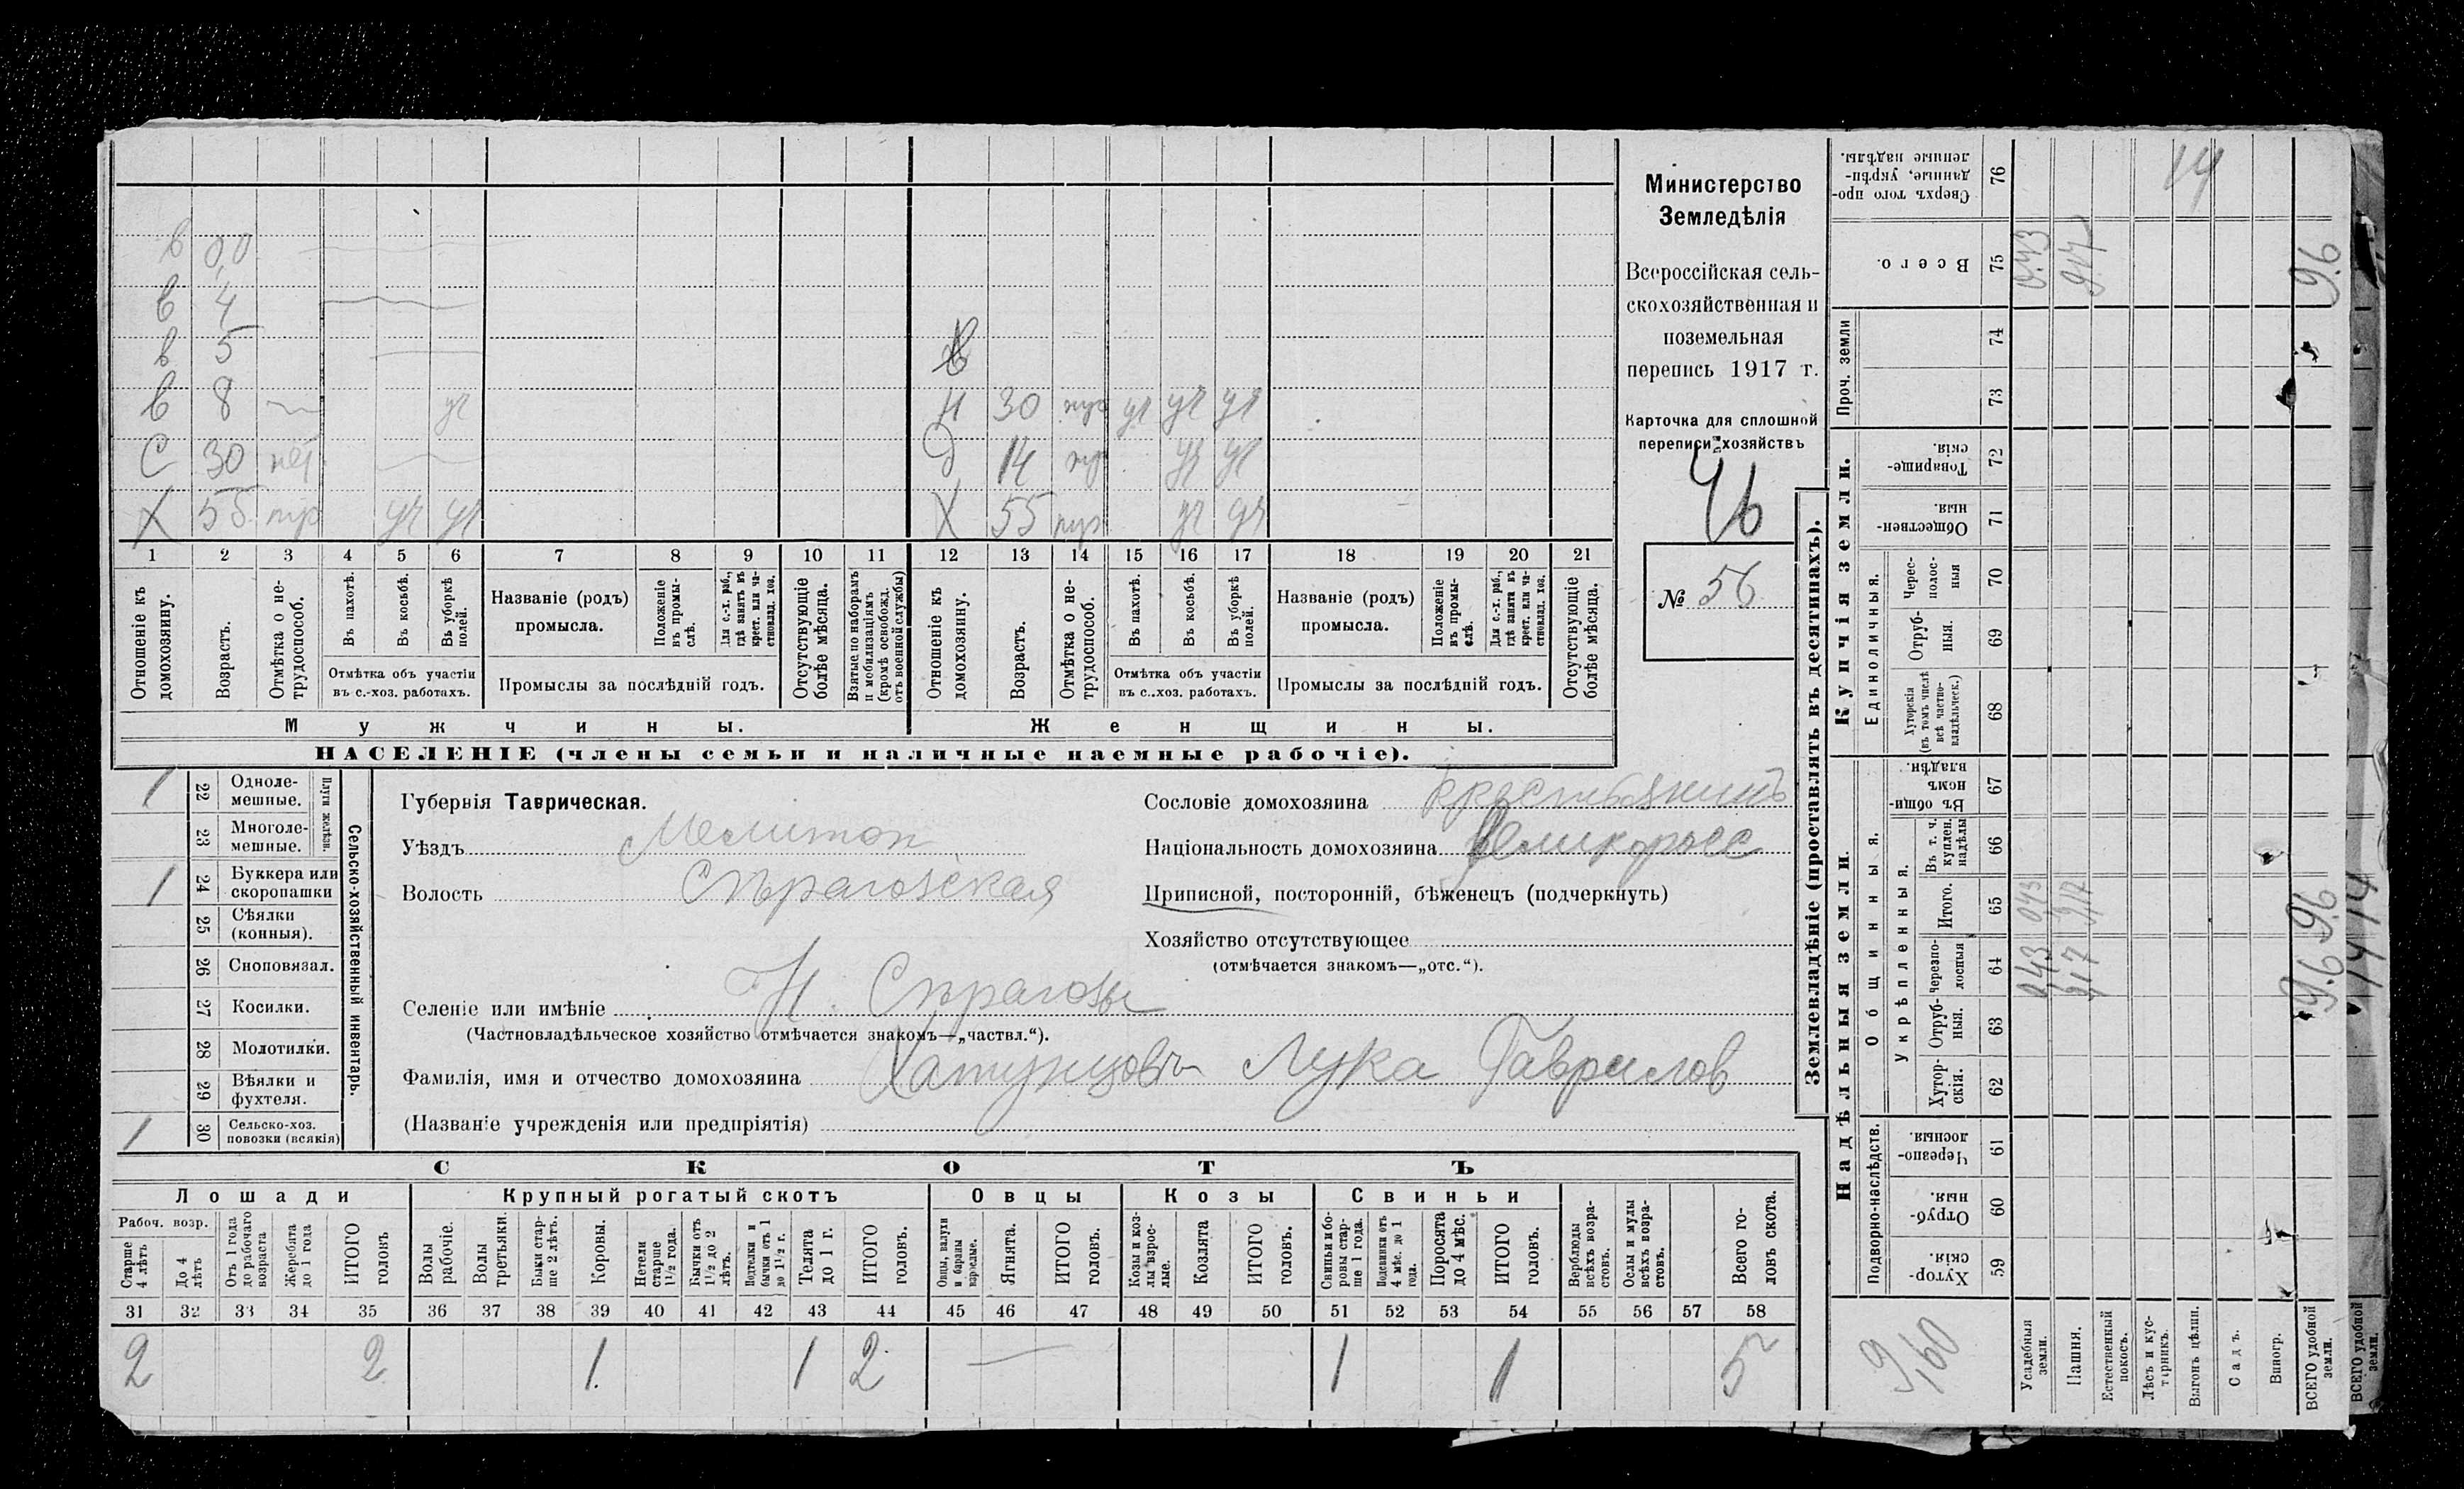 в 0,0
в 4
в 5
в 8 уч
С 30 нет
Х 55 тр уч уч
Н 30 уч уч уч
Д 14 уч уч
Х 55 уч уч
1 2 3 4 5 6 7 8 9 10 11 12 13 14 15 16 17 18 19 20 21
Отношеніе къ домохозяину.
Возрастъ.
Отмѣтка о не-трудоспособ.
Въ пахотѣ.
Въ косьбѣ.
Въ уборкѣ полей.
Отмѣтка объ участіи
въ с.-хоз. работахъ.
Названіе (родъ)
промысла.
Положеніе въ промы-слѣ.
Для с.-х. раб., гдѣ занятъ въ крест. или ча-стновлад. хоз.
Промыслы за послѣдній годъ.
Отсутствующіе болѣе мѣсяца.
Взятые по наборамъ и мобилизаціямъ (кромѣ освобожд. отъ военной службы)
Отношеніе къ домохозяину.
Возрастъ.
Отмѣтка о не-трудоспособ.
Въ пахотѣ.
Въ косьбѣ.
Въ уборкѣ полей.
Отмѣтка объ участіи
въ с..хоз. работахъ.
Названіе (родъ)
промысла.
Положеніе въ промы-слѣ.
Для с.-х. раб., гдѣ занята въ крест. или ча-стновлад. хоз.
Промыслы за послѣдній годъ.
Отсутствующіе болѣе мѣсяца.
Мужчины.
Женщины.
НАСЕЛЕНІЕ (члены семьи и наличные наемные рабочіе).
Министерство
Земледѣлія
Всероссійская сель-
скохозяйственная и
поземельная
перепись 1917 г.
Карточка для сплошной
переписи хозяйствъ
46
№ 56
1 22 Одноле-мешные.
23 Многоле-мешные.
Плуги желѣзн.
1 24 Буккера или скоропашки
25 Сѣялки (конныя).
26 Сноповязал.
27 Косилки.
28 Молотилки.
29 Вѣялки и фухтеля.
1 30 Сельско-хоз. повозки (всякія)
Сельско-хозяйственный инвентарь.
Губернія Таврическая.
Уѣздъ Мелитоп
Волость Сѣрагозская
Селеніе или имѣніе Н. Сѣрагозы
(Частновладѣльческое хозяйство отмѣчается знакомъ—„частвл.“).
Фамилія, имя и отчество домохозяина Хатунцовъ Лука Гаврилов
(Названіе учрежденія или предпріятія)
Сословіе домохозяина крестьянинъ
Національность домохозяина великоросс
Приписной, посторонній, бѣженецъ (подчеркнуть)
Хозяйство отсутствующее
(отмѣчается знакомъ—„отс.“).
СКОТЪ
Лошади
Крупный рогатый скотъ
Овцы
Козы
Свиньи
Рабоч. возр.
Старше 4 лѣтъ
До 4 лѣтъ
Отъ 1 года до рабочаго возраста
Жеребята до 1 года
ИТОГО головъ
Волы рабочіе.
Волы третьяки.
Быки стар-ше 2 лѣтъ.
Коровы.
Нетели старше 1½ года.
Бычки отъ 1½ до 2 лѣтъ.
Подтелки и бычки отъ 1 до 1½ г.
Телята до 1 г.
ИТОГО головъ.
Овцы, валухи и бараны взрослые.
Ягнята.
ИТОГО головъ.
Козы и коз-лы взрос-лые.
Козлята
ИТОГО головъ.
Свиньи и бо-ровы стар-ше 1 года.
Подсвинки отъ 4 мѣс. до 1 года.
Поросята до 4 мѣс.
ИТОГО головъ.
Верблюды всѣхъ возра-стовъ.
Ослы и мулы всѣхъ возра-стовъ.
Всего го-ловъ скота.
31 32 33 34 35 36 37 38 39 40 41 42 43 44 45 46 47 48 49 50 51 52 53 54 55 56 57 58
2 2 1 1 2 1 1 5
Землевладѣніе (проставлять въ десятинахъ).
Купчія земли.
Надѣльныя земли.
Сверхъ того про-данные, укрѣп-ленные надѣлы. 76
14
Всего. 75
0.43
9.17
9.6
Проч. земли
74
73
Товарище-скія. 72
Обществен-ныя. 71
Единоличныя.
Черес-полос-ныя 70
Отруб-ныя. 69
Хуторскія (въ томъ числѣ всѣ частно-владѣльческ.) 68
Общинныя.
Въ общи-нномъ владѣн. 67
Укрѣпленныя.
Въ т. ч. куплен. надѣлы 66
Итого. 65
043
917
9.6
Черезпо-лосныя 64
0,43
9,17
9.6
1414
Отруб-ныя. 63
Хутор-скія. 62
Подворно-наслѣдств.
Черезпо-лосныя. 61
Отруб-ныя. 60
Хутор-скія. 59
9,60
Усадебныя земли.
Пашня.
Естественный покосъ.
Лѣсъ и кус-тарникъ.
Выгонъ цѣлин.
Садъ.
Виногр.
ВСЕГО удобной земли.
ВСЕГО удобной земли.